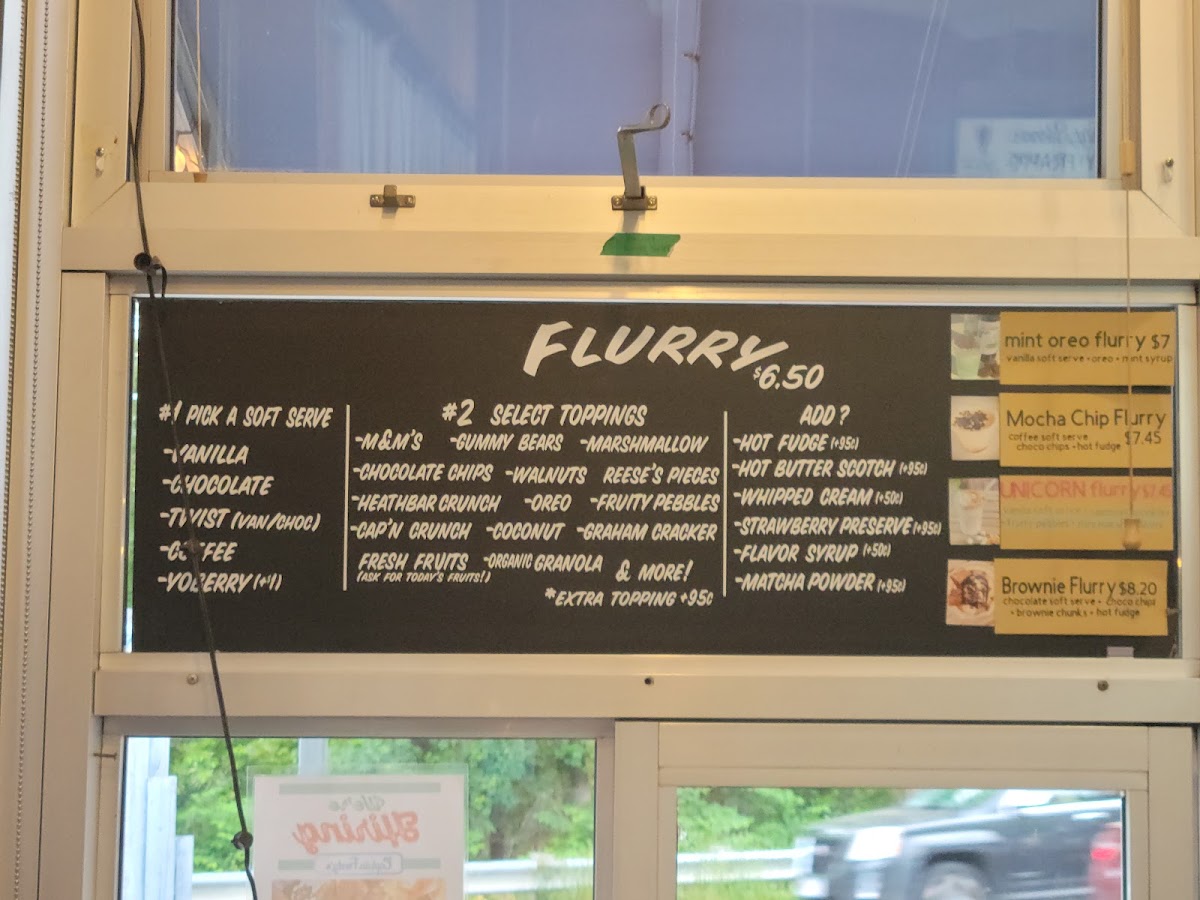 FLURRY
$6.50
#1 PICK A SOFT SERVE
-VANILLA
-CHOCOLATE
-TWIST (VAN/CHOC)
-COFFEE
-YOBERRY (+$1)
#2 SELECT TOPPINGS
-M&M'S -GUMMY BEARS -MARSHMALLOW
-CHOCOLATE CHIPS -WALNUTS REESE'S PIECES
-HEATHBAR CRUNCH -OREO -FRUITY PEBBLES
-CAP'N CRUNCH -COCONUT -GRAHAM CRACKER
FRESH FRUITS -ORGANIC GRANOLA & MORE!
(ASK FOR TODAY'S FRUITS!)
*EXTRA TOPPING +95¢
ADD?
-HOT FUDGE (+95¢)
-HOT BUTTER SCOTCH (+95¢)
-WHIPPED CREAM (+50¢)
-STRAWBERRY PRESERVE (+95¢)
-FLAVOR SYRUP (+50¢)
-MATCHA POWDER (+95¢)
mint oreo flurry $7
vanilla soft serve • oreo • mint syrup
Mocha Chip Flurry
coffee soft serve $7.45
choco chips • hot fudge
UNICORN flurry $7.45
vanilla soft serve
fruity pebbles
Brownie Flurry $8.20
chocolate soft serve • choco chips
• brownie chunks • hot fudge
We're
Hiring